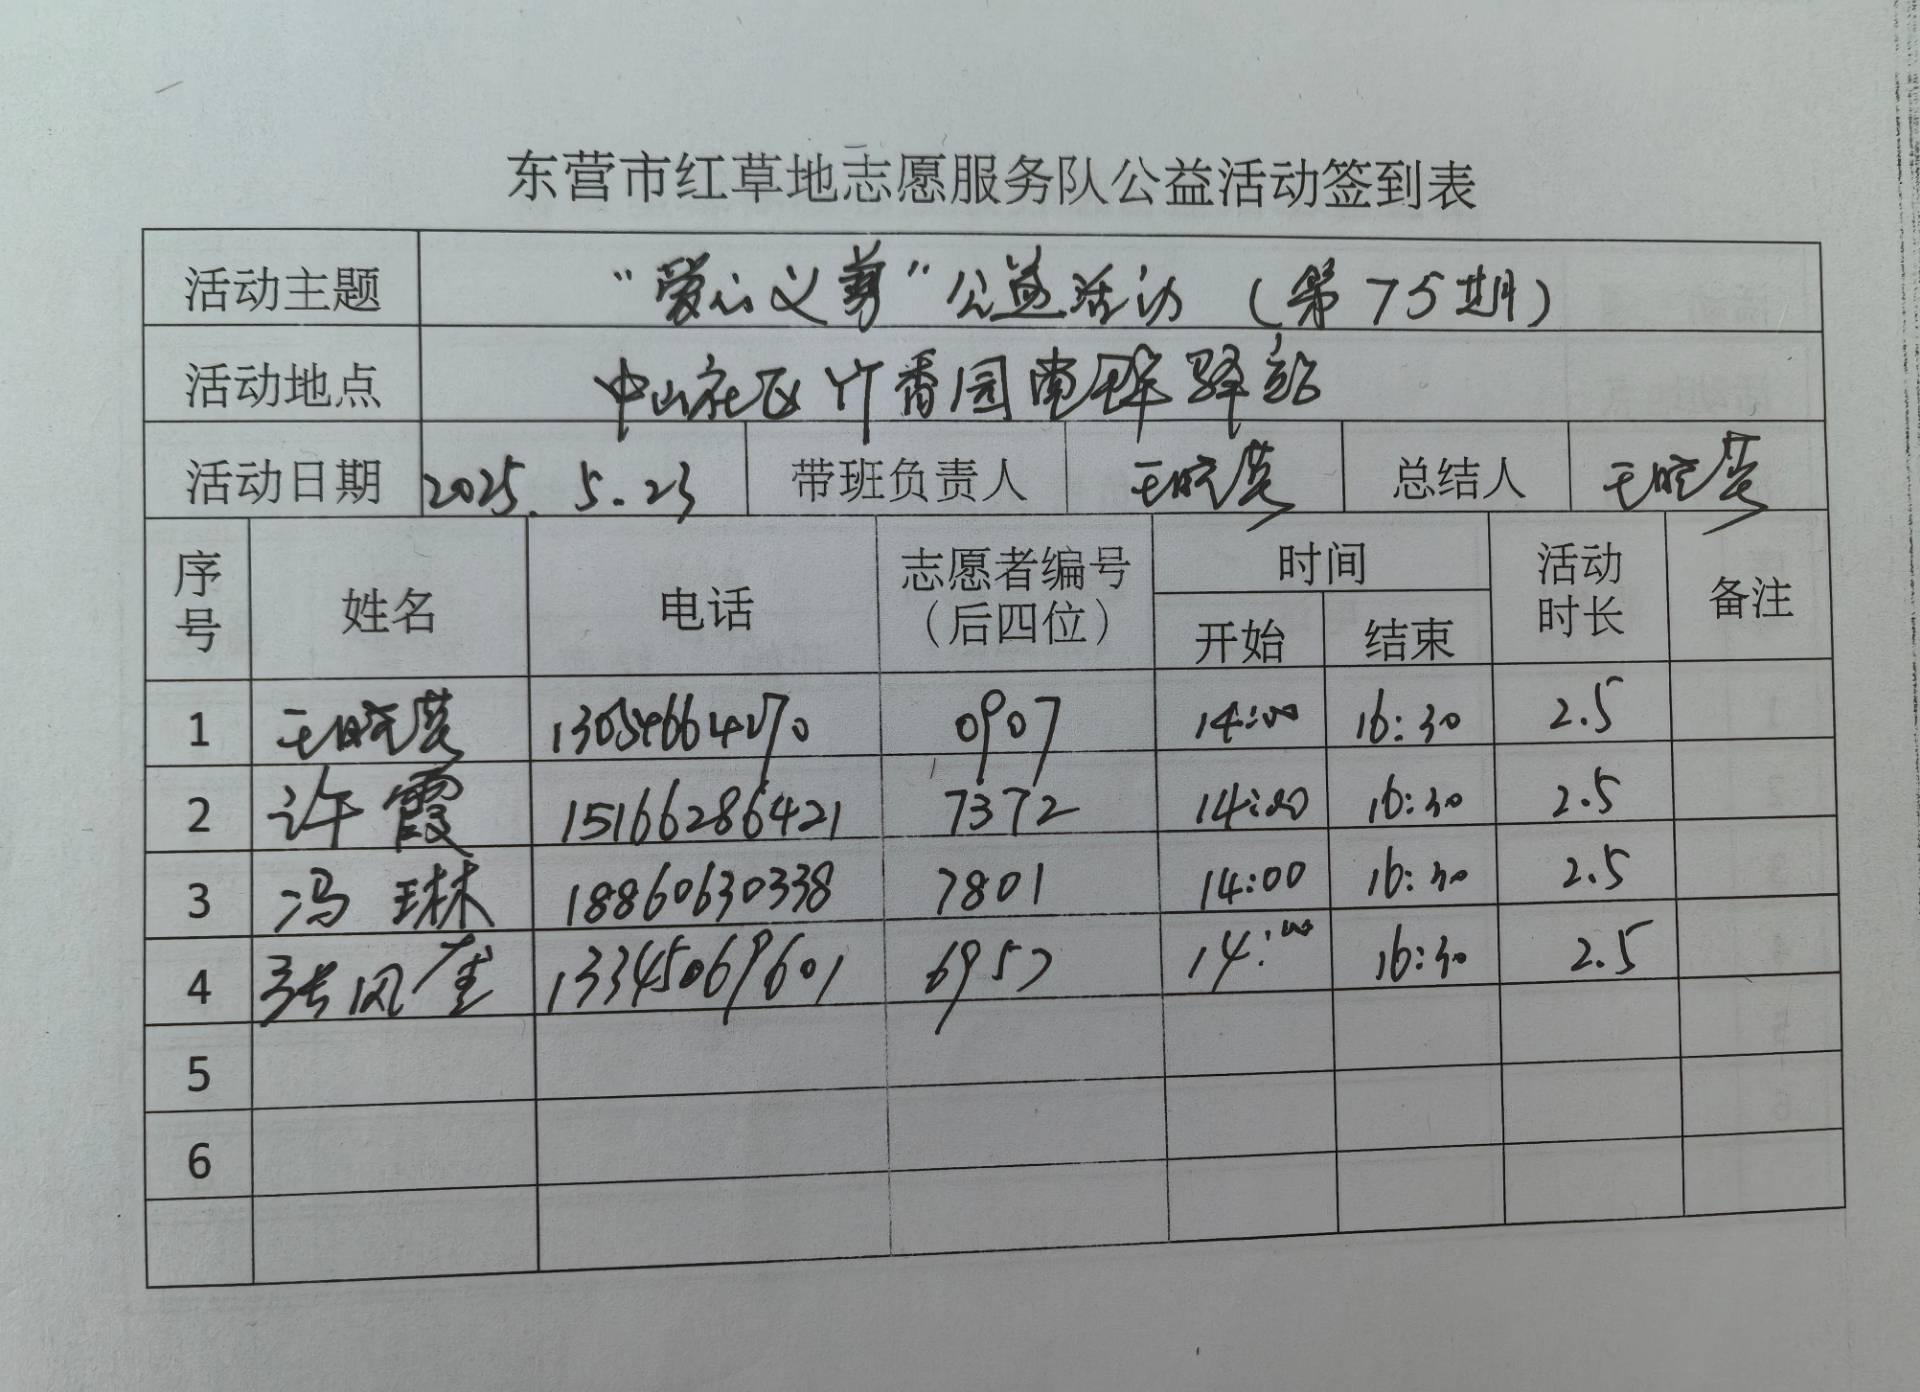 东营市红草地志愿服务队公益活动签到表
活动主题 “爱心义剪”公益活动（第75期）
活动地点 中山社区竹香园南邻驿站
活动日期 2025.5.23 带班负责人 王晓营 总结人 王晓营
序号 姓名 电话 志愿者编号（后四位） 时间 开始 结束 活动时长 备注
1 王晓营 0907 14:00 16:30 2.5
2 许霞 15166286421 7372 14:00 16:30 2.5
3 冯琳 18860630338 7801 14:00 16:30 2.5
4 张风 13345069601 6957 14:00 16:30 2.5
5
6